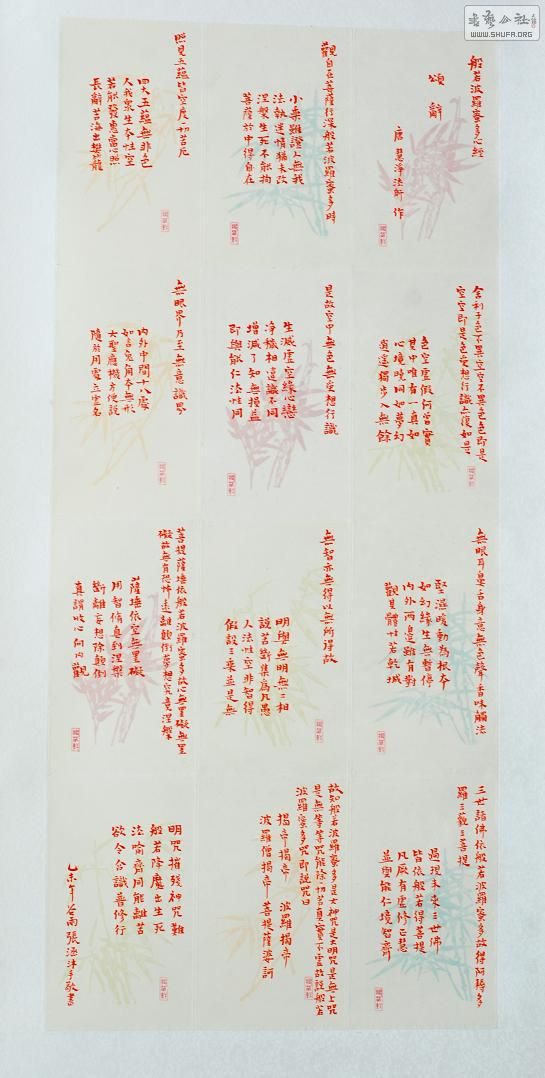 書藝公社
WWW.SHUFA.ORG
般若波羅蜜多心經
頌辭
唐 慧淨法師 作
觀自在菩薩行深般若波羅蜜多時
小乘雖證人無我
法執迷情猶未改
涅槃生死不能拘
菩薩於中得自在
照見五蘊皆空度一切苦厄
四大五蘊無非色
人我眾生本性空
若能發慧當心照
長辭苦海出樊籠
舍利子色不異空空不異色色即是
空空即是色受想行識亦復如是
色空空假何曾實
其中唯有一真如
心境既同如夢幻
逍遙獨步入無餘
是故空中無色無受想行識
生滅虛空緣心戀
淨穢相違識不同
增減了知無損益
即與能仁法性同
無眼界乃至無意識界
內外中間十八處
如言兔角本無形
大聖應機方便說
隨於用處立虛名
無眼耳鼻舌身意無色聲香味觸法
堅濕暖動為根本
如幻緣生無暫停
內外兩邊雖有對
觀其體廿若乾城
無智亦無得以無所得故
明與無明無二相
說苦斷集為凡愚
人法性空非智得
假設三乘並是無
菩提薩埵依般若波羅蜜多故心無罣礙無罣
礙故無有恐怖遠離顛倒夢想究竟涅槃
薩埵依空無罣礙
用智脩身到涅槃
斷離妄想除顛倒
真謂收心阿內觀
三世諸佛依般若波羅蜜多故得阿耨多
羅三藐三菩提
過現未來三世佛
皆依般若得菩提
凡厥有虛修正慧
並要能仁境智齊
故知般若波羅蜜多是大神咒是大明咒是無上咒
是無等等咒能除一切苦真實不虛故說般若
波羅蜜多咒即說咒曰
揭帝揭帝 波羅揭帝
波羅僧揭帝 菩提薩婆訶
明咒摧殘神咒難
般若降魔出生死
法喻齊同能離苦
欲令含識善修行
乙未年谷雨張涵沐手敬書